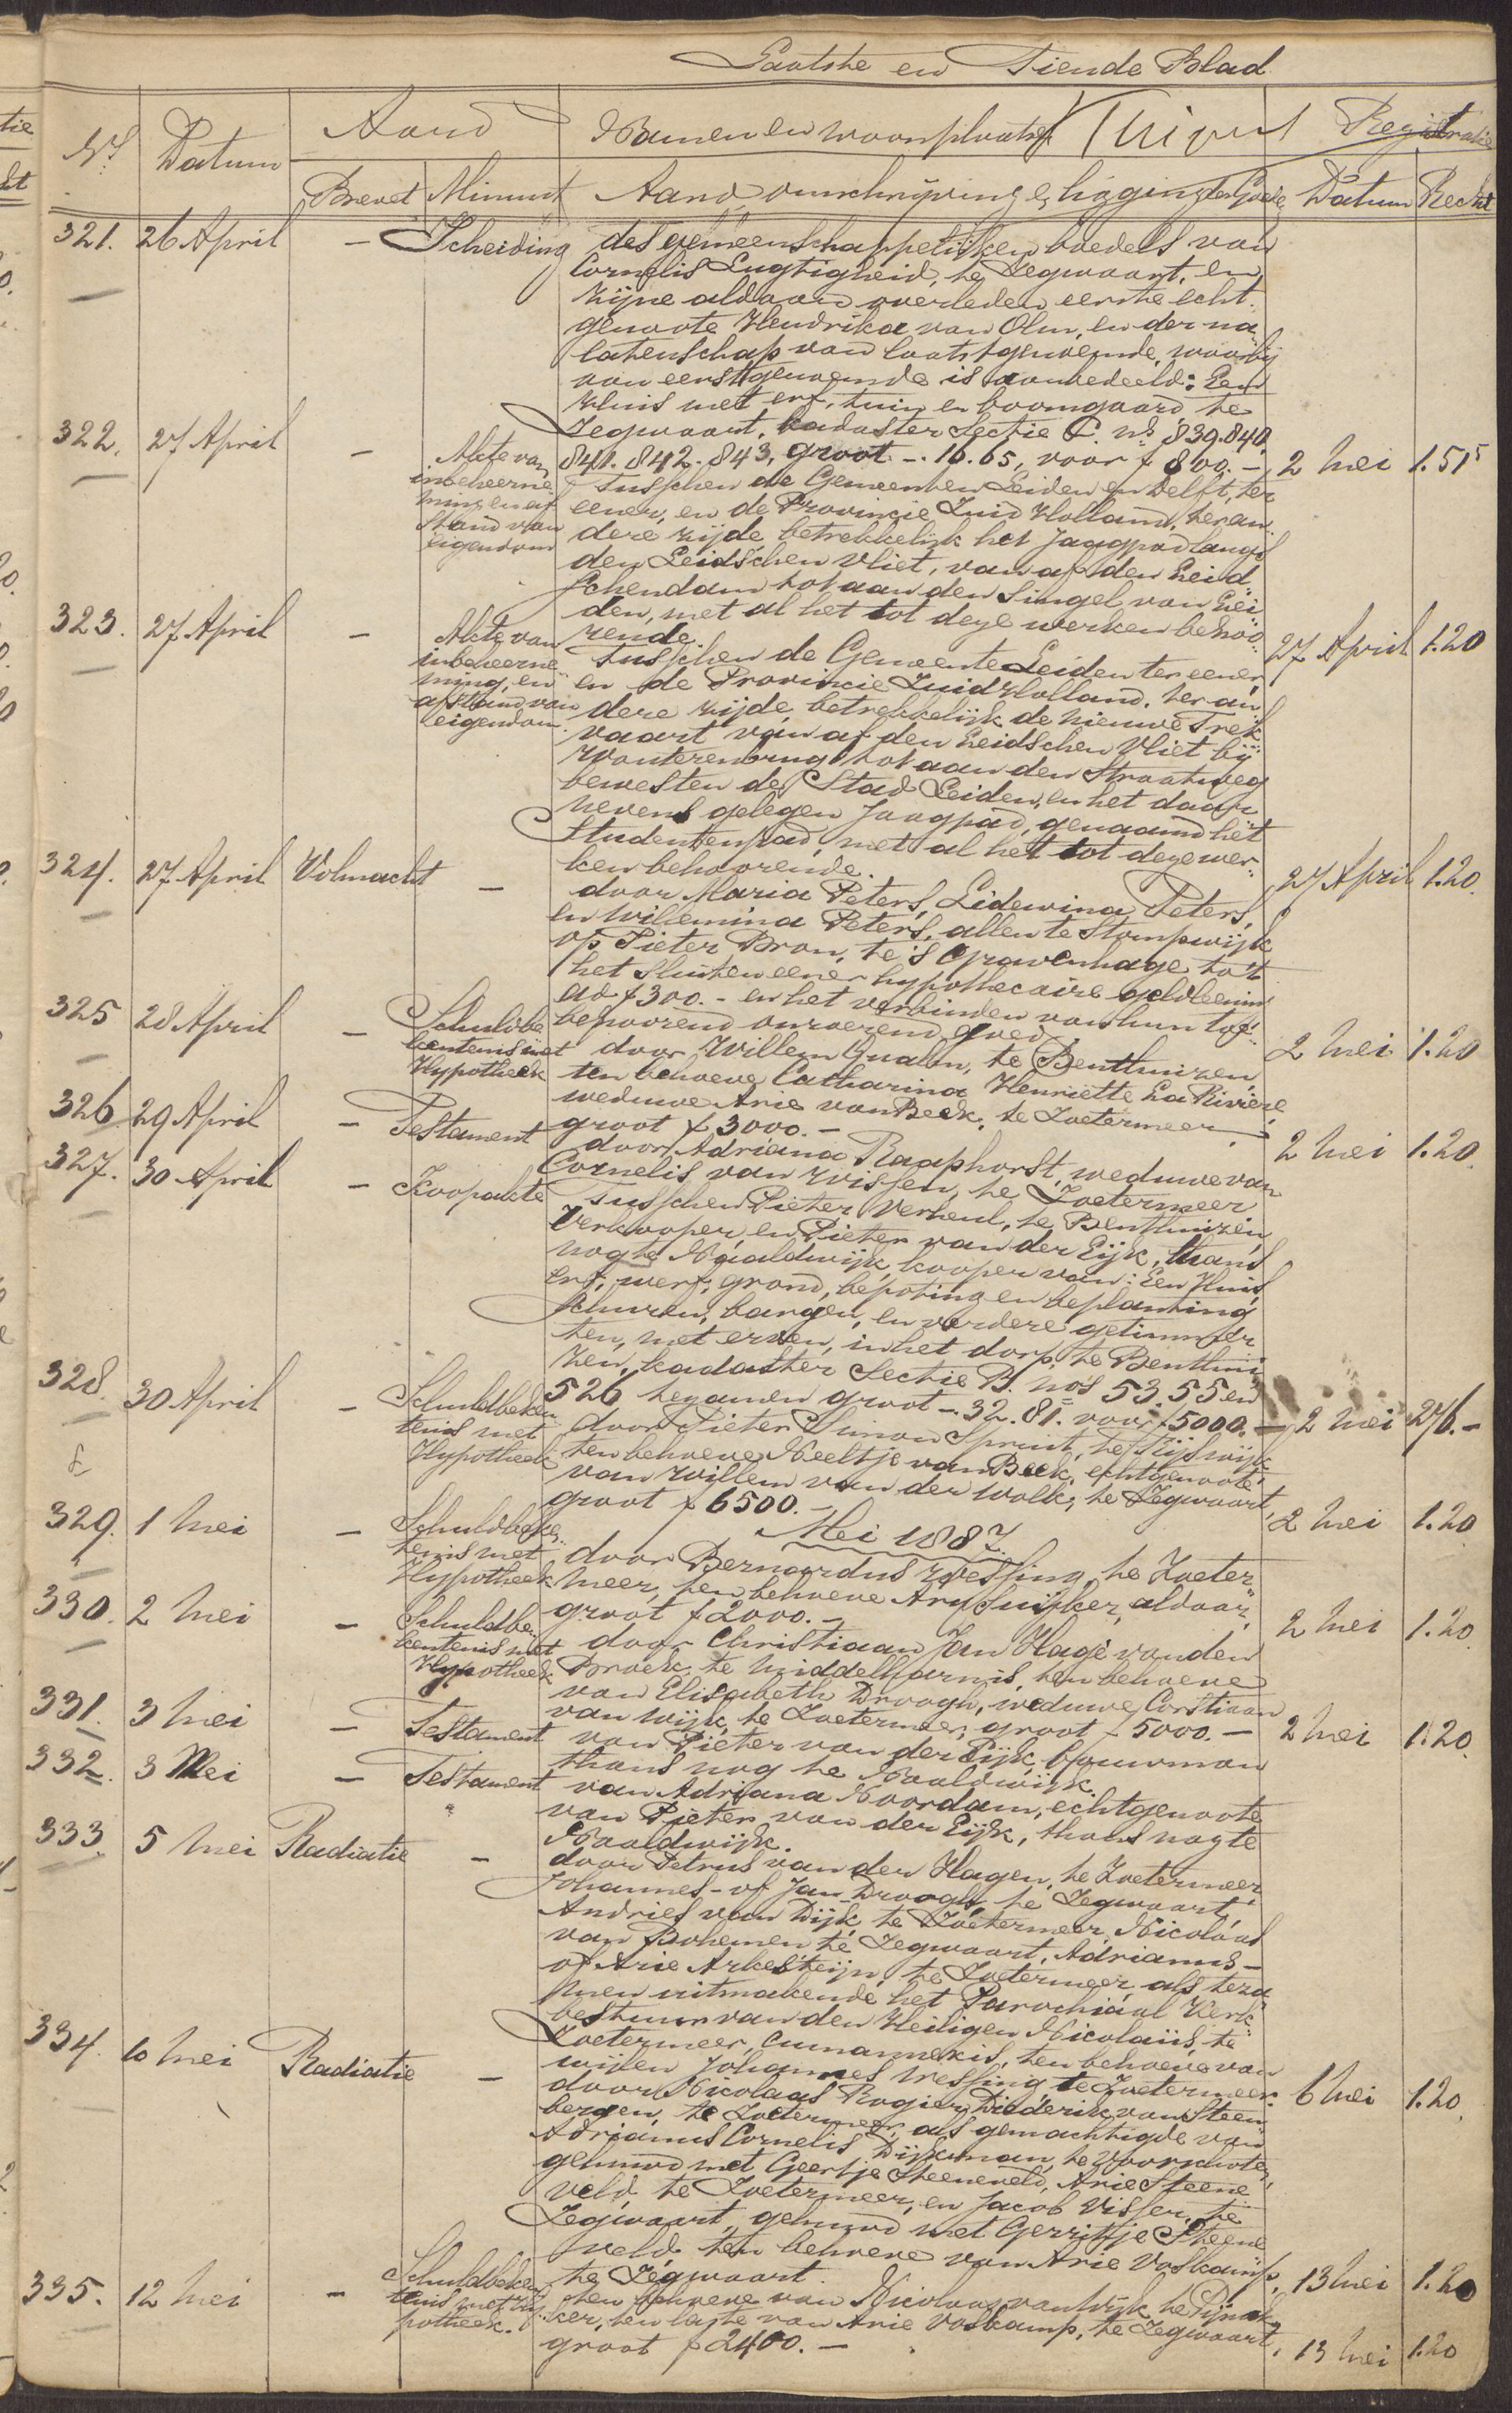 Laatste en Tiende Blad
No. Datum Aard Namen en woonplaatsen Registratie
Brevet Minuut Aard, omschrijving & ligging der Goed. Datum Recht
321. 26 April - Scheiding des gemeenschappelijken boedels van
Cornelis Lugtigheid, te Zegwaart, en
zijne aldaar overleden eerste echt-
genoote Hendrika van Olm, en der na
latenschap van laatstgenoemde, waarbij
van eerstgenoemde is aanbedeeld: Een
Huis met erf, tuin en boomgaard te
Zegwaart, kadaster Sectie C. nos 839. 840.
841. 842. 843, groot -. 16. 65, voor f 800.- 2 Mei 1.515
322. 27 April - Akte van
inbeheerne
ming en af
stand van
eigendom
tusschen de Gemeenten Leiden en Delft, ter
eener, en de Provincie Zuid Holland, ter an
dere zijde betrekkelijk het Jaagpad langs
den Leidschen Vliet, van af den Leid
schendam tot aan den Singel van Lei
den, met al het tot deze werken behoo
rende. 27 April 1.20
323. 27 April - Akte van
inbeheerne
ming, en
afstand van
eigendom
tusschen de Gemeente Leiden ter eener
en de Provincie Zuid Holland, ter an
dere zijde, betrekkelijk de nieuwe Trek
vaart van af den Leidschen Vliet bij
Wouterenbrug tot aan den Straatweg
bewesten de Stad Leiden, en het daar
nevens gelegen Jaagpad, genaamd het
Studentenpad, met al het tot deze wer-
ken behoorende. 27 April 1.20.
324. 27 April Volmacht - door Maria Peters, Lidewina Peters,
en Willemina Peters, allen te Stompwijk
op Pieter Bron, te 's Gravenhage tot
het sluiten eener hypothecaire geldleening
ad f 300.- en het verbinden van hun toe-
behoorend onroerend goed 2 Mei 1.20
325 28 April - Schuldbe
kentenis met
Hypotheek
door Willem Qualm, te Benthuizen,
ten behoeve Catharina Henriette La Rivière
weduwe Arie van Beek, te Zoetermeer,
groot f 3000.- 2 Mei 1.20.
326 29 April - Testament door Adriana Raaphorst, weduwe van
Cornelis van Wissen, te Zoetermeer
327. 30 April - Koopakte tusschen Pieter Verheul, te Benthuizen,
Verkooper, en Pieter van der Eijk, thans
nog te Naaldwijk, kooper van: Een Huis
erf, werf, grond, bepoting en beplanting
schuren, bargen, en verdere getimmer
ten, met erven, in het dorp te Benthui
zen, kadaster Sectie B. nos 53. 55 en
526 tezamen groot -. 32. 81. voor f 5000.- 2 Mei 276.-
328. 30 April - Schuldbeken
tenis met
Hypotheek
door Pieter Simon Spruit, te Rijswijk
ten behoeve Neeltje van Beek, echtgenoote
van Willem van der Wolk, te Zegwaart,
groot f 6500.- 2 Mei 1.20.
Mei 1887.
329. 1 Mei - Schuldbeken
tenis met
Hypotheek
door Bernardus Wessing, te Zoeter
meer, ten behoeve Ary Suijker, aldaar,
groot f 2000.- 2 Mei 1.20.
330. 2 Mei - Schuldbe
kentenis met
Hypotheek
door Christiaan Jan Hage van den
Broek, te Middelharnis, ten behoeve
van Elisabeth Droogh, weduwe Corstiaan
van Wijk, te Zoetermeer, groot f 5000.- 2 Mei 1.20.
331. 3 Mei - Testament van Pieter van der Eijk, bouwman
thans nog te Naaldwijk.
332. 3 Mei - Testament van Adriana Noordam, echtgenoote
van Pieter van der Eijk, thans nog te
Naaldwijk.
333. 5 Mei Radiatie - door Petrus van der Hagen, te Zoetermeer
Johannes - of Jan Droogh, te Zegwaart,
Andries van Dijk, te Zoetermeer, Nicolaas
van Bohemen te Zegwaart, Adrianus -
of Arie Arkesteijn, te Zoetermeer, als teza
men uitmakende het Parochiaal Kerk
bestuur van den Heiligen Nicolaüs, te
Zoetermeer, cum annexis, ten behoeve van
wijlen Johannes Wessing, te Zoetermeer. 6 Mei 1.20.
334. 10 Mei Radiatie - door Nicolaas Rogier Diederik van Steen
bergen, te Zoetermeer, als gemachtigde van
Adrianus Cornelis Dijksman, te Voorschoten,
gehuwd met Geertje Steeneveld, Arie Steene
veld, te Zoetermeer, en Jacob Visser, te
Zegwaart, gehuwd met Gerritje Steene
veld, ten behoeve van Arie Voskamp,
te Zegwaart. 13 Mei 1.20
335. 12 Mei - Schuldbeken
tenis met Hy
potheek.
ten behoeve van Nicolaas van Wijk, te Pijnak
ker, ten laste van Arie Voskamp, te Zegwaart,
groot f 2400.- 13 Mei 1.20